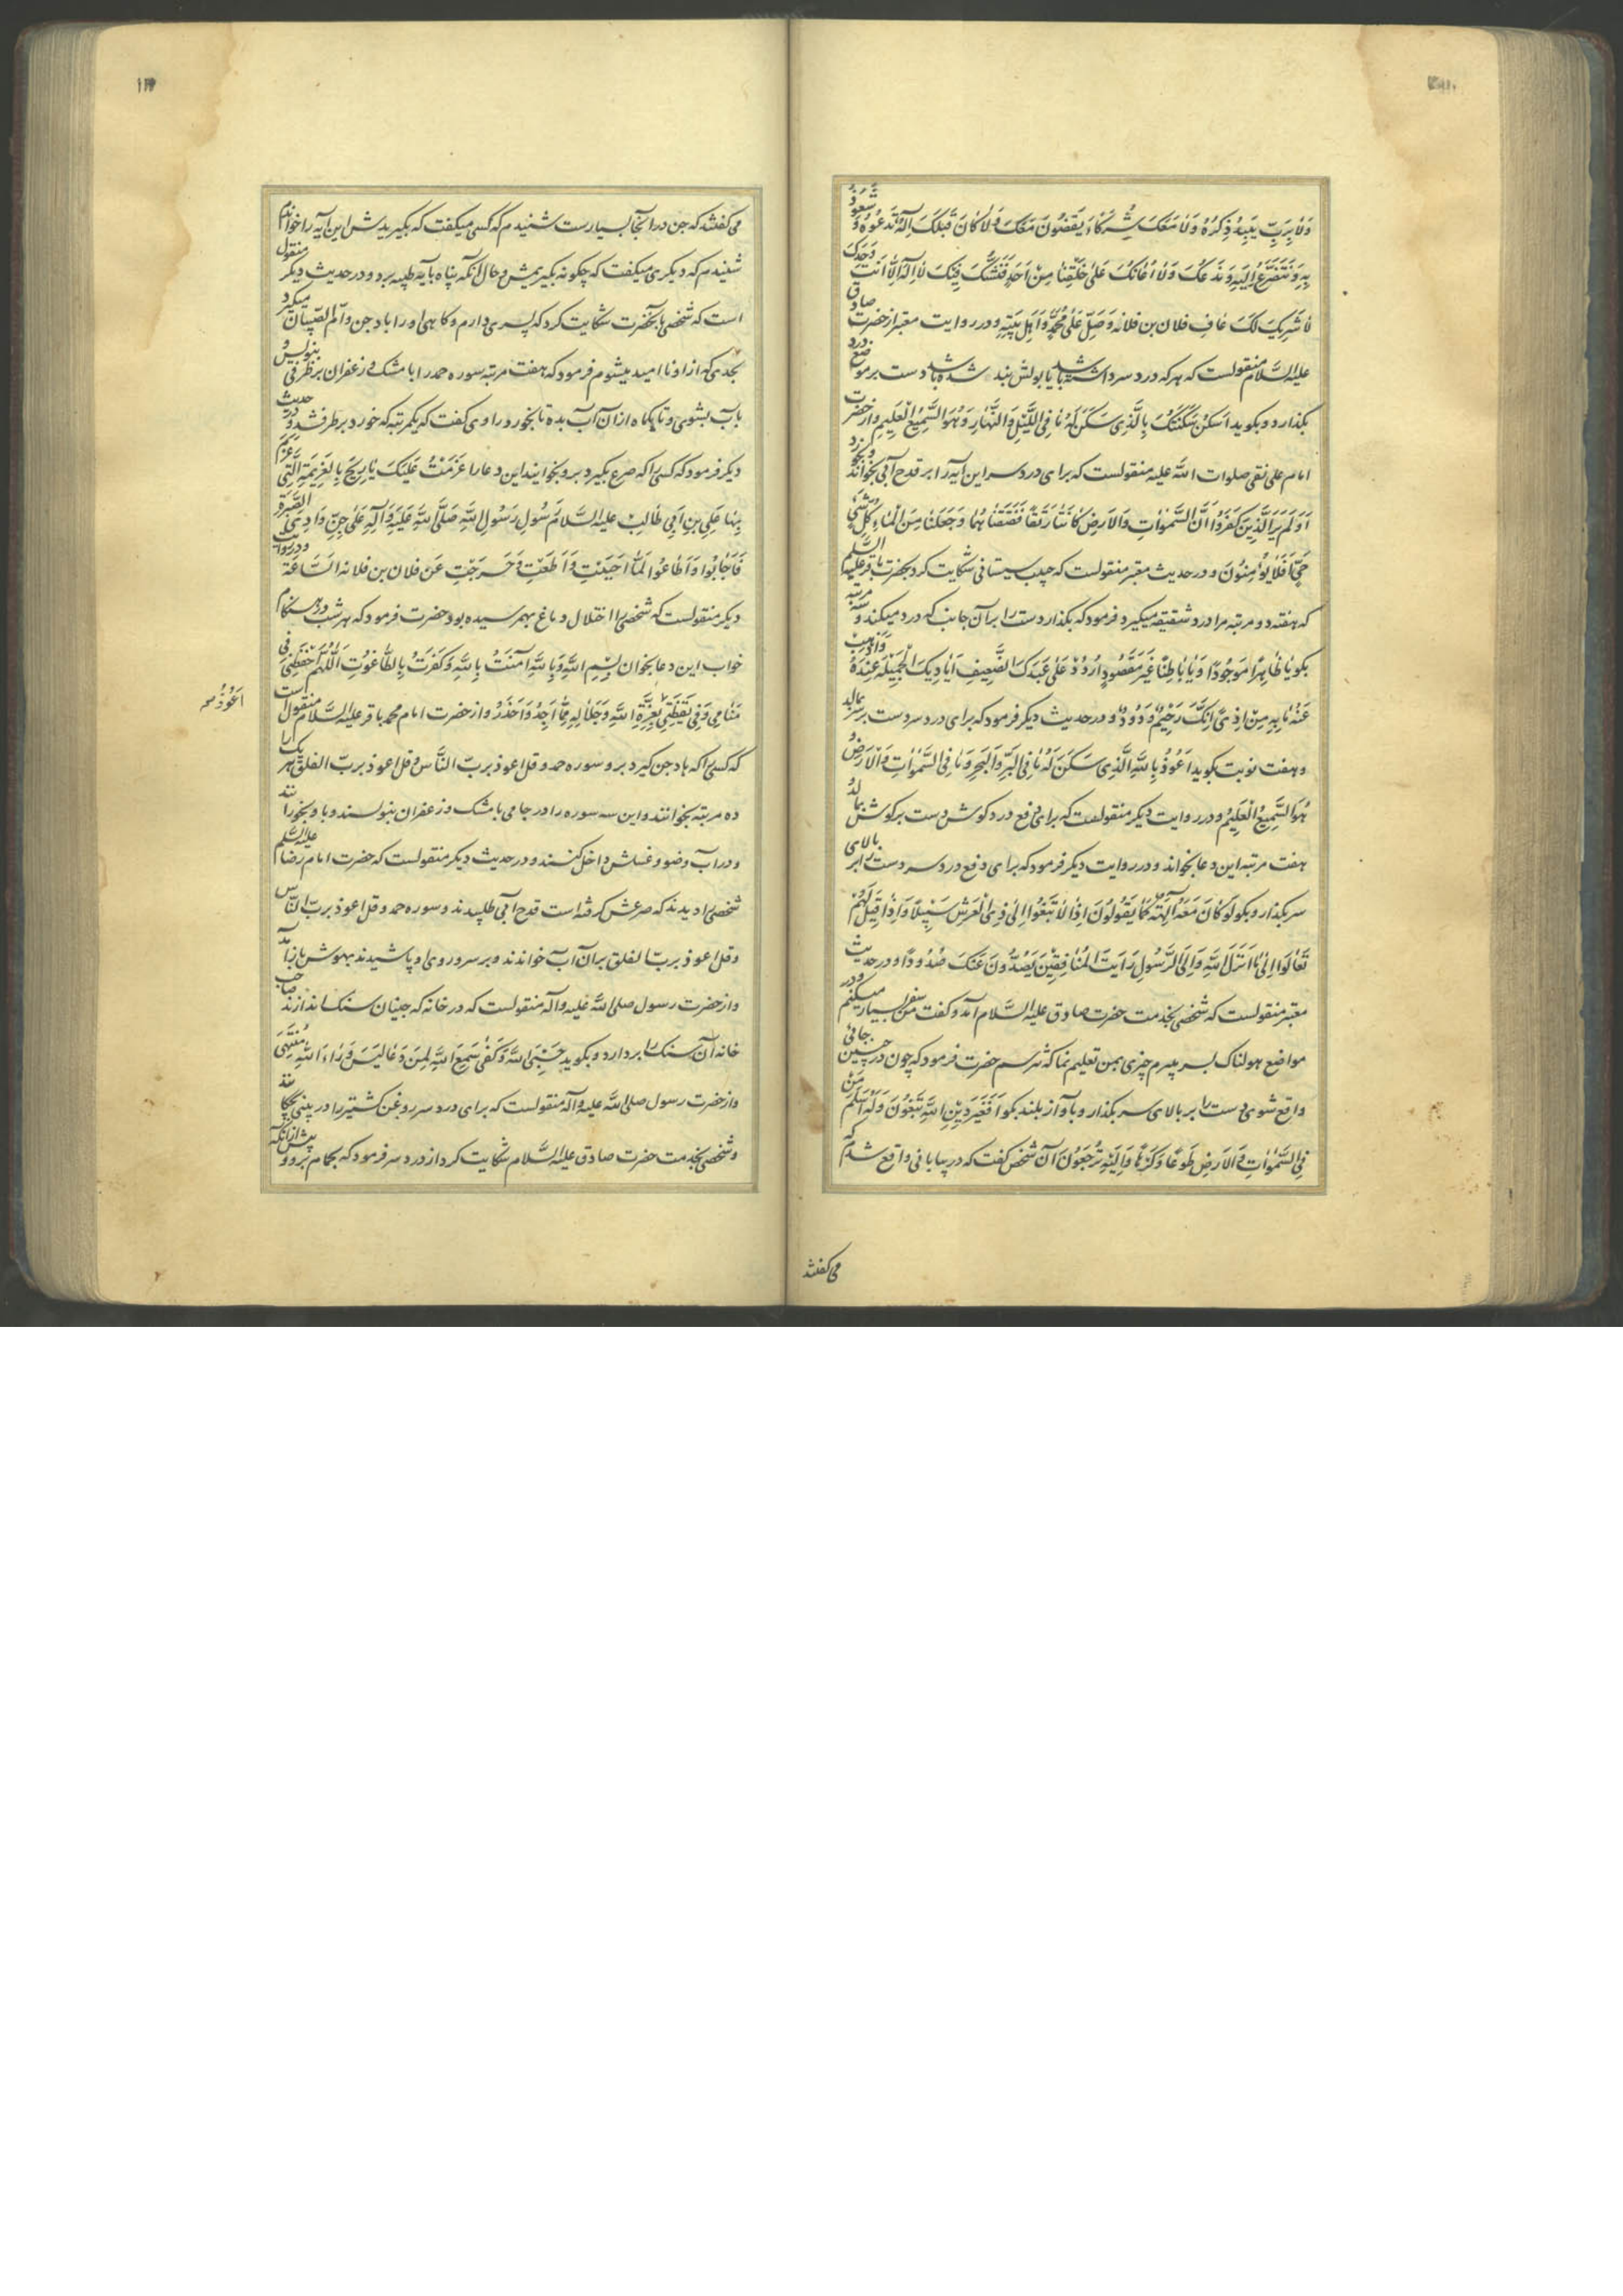 وَلَا بِرَبٍّ يَبِيدُ ذِكْرُهُ وَلَا مَعَكَ شُرَكَاءُ يَقْضُونَ مَعَكَ وَلَا كَانَ قَبْلَكَ اِلٰهٌ نَدْعُوهُ وَ نَتَعَوَّذُ
بِهِ وَنَتَضَرَّعُ اِلَيْهِ وَنَدَعُكَ وَلَا اَعَانَكَ عَلٰى خَلْقِنَا مِنْ اَحَدٍ فَنَشُكَّ فِيكَ لَا اِلٰهَ اِلَّا اَنْتَ وَحْدَكَ
لَا شَرِيكَ لَكَ عَافِ فلان بن فلانه وَصَلِّ عَلٰى مُحَمَّدٍ وَاَهْلِ بَيْتِهِ و در روایت معتبر از حضرت صادق
علیه السّلام منقولست که هر که درد سر داشته باشد یا بولش بند شده باشد دست بر موضع درد
بگذارد و بگوید اُسْكُنْ سَكَّنْتُكَ بِالَّذِى سَكَنَ لَهُ مَا فِى اللَّيْلِ وَالنَّهَارِ وَهُوَ السَّمِيعُ الْعَلِيمِ و از حضرت
امام علی نقی صلوات اللّه علیه منقولست که برای درد سر این آیه را بر قدح آبی بخواند و بخورد
اَوَلَمْ يَرَ الَّذِينَ كَفَرُوا اَنَّ السَّمٰوَاتِ وَالْاَرْضَ كَانَتَا رَتْقًا فَفَتَقْنَاهُمَا وَجَعَلْنَا مِنَ الْمَاءِ كُلَّ شَىْءٍ
حَىٍّ اَفَلَا يُؤْمِنُونَ و در حدیث معتبر منقولست که حبیب سیستانی شکایت کرد بحضرت باقر علیه السلم
که هفته دو مرتبه مرا درد شقیقه میگیرد فرمود که بگذار دست را بر آن جانب که درد میکند و سه مرتبه
بگو يَا ظَاهِرًا مَوْجُودًا وَيَا بَاطِنًا غَيْرَ مَفْقُودٍ اُرْدُدْ عَلٰى عَبْدِكَ الضَّعِيفِ اَيَادِيكَ الْجَمِيلَةَ عِنْدَهُ وَاَذْهِبْ
عَنْهُ مَا بِهِ مِنْ اَذًى اِنَّكَ رَحِيمٌ وَدُودٌ و در حدیث دیگر فرمود که برای درد سر دست بر سر بمالد
و هفت نوبت بگوید اَعُوذُ بِاللّٰهِ الَّذِى سَكَنَ لَهُ مَا فِى الْبَرِّ وَالْبَحْرِ وَمَا فِى السَّمٰوَاتِ وَالْاَرْضِ
هُوَ السَّمِيعُ الْعَلِيمُ و در روایت دیگر منقولست که برای دفع درد گوش دست بر گوش بمالد و
هفت مرتبه این دعا بخواند و در روایت دیگر فرمود که برای دفع درد سر دست را بر بالای
سر بگذار و بگو لَوْ كَانَ مَعَهُ آلِهَةٌ كَمَا يَقُولُونَ اِذًا لَابْتَغَوْا اِلٰى ذِى الْعَرْشِ سَبِيلًا وَاِذَا قِيلَ لَهُمْ
تَعَالَوْا اِلٰى مَا اَنْزَلَ اللّٰهُ وَاِلَى الرَّسُولِ رَاَيْتَ الْمُنَافِقِينَ يَصُدُّونَ عَنْكَ صُدُودًا و در حدیث
معتبر منقولست که شخصی بخدمت حضرت صادق علیه السّلام آمد و گفت من سفر بسیار میکنم و در
مواضع هولناک بسر میبرم چیزی بمن تعلیم نما که نترسم حضرت فرمود که چون در چنین جائی
واقع شوی دست را بر بالای سر بگذار و بآواز بلند بگو اَفَغَيْرَ دِينِ اللّٰهِ تَبْغُونَ وَلَهُ اَسْلَمَ مَنْ
فِى السَّمٰوَاتِ وَالْاَرْضِ طَوْعًا وَكَرْهًا وَاِلَيْهِ تُرْجَعُونَ آن شخص گفت که در بیابانی واقع شدم که
می‌گفتند
می‌گفتند که جن در آنجا بسیار است شنیدم که کسی میگفت که بگیریدش این آیه را خواندم
شنیدم که دیگری میگفت که چگونه بگیریمش و حال آنکه پناه بآیه طیبه برد و در حدیث دیگر منقول
است که شخصی بآنحضرت شکایت کرد که پسری دارم و گاهی او را باد جن و ام الصّبیان میگیرد
بحدی که از او ناامید میشوم فرمود که هفت مرتبه سوره حمد را با مشک و زعفران بر ظرفی بنویس و
بآب بشوی و تا یکماه از آن آب بده تا بخورد راوی گفت که یکمرتبه که خورد برطرف شد و در حدیث
دیگر فرمود که کسی را که صرع بگیرد برو بخوانید این دعا را عَزَمْتُ عَلَيْكَ يَا رِيحُ بِالْعَزِيمَةِ الَّتِى عَزَمَ
بِهَا عَلِىُّ بْنُ اَبِى طَالِبٍ عليه السَّلَامُ رَسُولُ رَسُولِ اللّٰهِ صَلَّى اللّٰهُ عَلَيْهِ وَآلِهِ عَلٰى جِنِّ وَادِى الصَّبْرَةِ
فَاَجَابُوا وَاَطَاعُوا لَمَّا اَجَبْتِ وَاَطَعْتِ وَخَرَجْتِ عَنْ فلان بن فلانه السَّاعَةَ و در روایت
دیگر منقولست که شخصی را اختلال دماغ بهم رسیده بود حضرت فرمود که هر شب در هنگام
خواب این دعا بخوان بِسْمِ اللّٰهِ وَبِاللّٰهِ آمَنْتُ بِاللّٰهِ وَكَفَرْتُ بِالطَّاغُوتِ اَللّٰهُمَّ احْفَظْنِى فِى
مَنَامِى وَفِى يَقْظَتِى بِعِزَّةِ اللّٰهِ وَجَلَالِهِ مِمَّا اَجِدُ وَاَحْذَرُ و از حضرت امام محمد باقر علیه السّلام منقول است
اَعُوذُ صح
که کسی را که باد جن گیرد برو سوره حمد و قل اعوذ بربّ النّاس و قل اعوذ بربّ الفلق هر یک را
ده مرتبه بخوانند و این سه سوره را در جامی با مشک و زعفران بنویسند و باو بخورانند
و در آب وضو و غسلش داخل کنند و در حدیث دیگر منقولست که حضرت امام رضا علیه السّلم
شخصی را دیدند که صرعش گرفته است قدح آبی طلبیدند و سوره حمد و قل اعوذ بربّ النّاس
و قل اعوذ بربّ الفلق بر آن آب خواندند و بر سر و روی او پاشیدند بهوش باز آمد
و از حضرت رسول صلی اللّه علیه وآله منقولست که در خانه که جنیان سنگ اندازند صاحب
خانه آن سنگ را بردارد و بگوید حَسْبِىَ اللّٰهُ وَكَفٰى سَمِعَ اللّٰهُ لِمَنْ دَعَا لَيْسَ وَرَاءَ اللّٰهِ مُنْتَهٰى
و از حضرت رسول صلی اللّه علیه وآله منقولست که برای درد سر روغن کشنیز را در بینی چکانند
و شخصی بخدمت حضرت صادق علیه السّلام شکایت کرد از درد سر فرمود که بحمام برو و پیش از آنکه